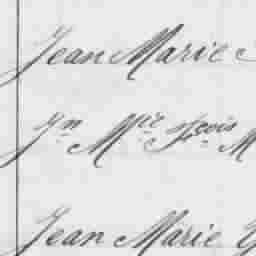 Jean Marie
Jn Mie Fcois M
Jean Marie